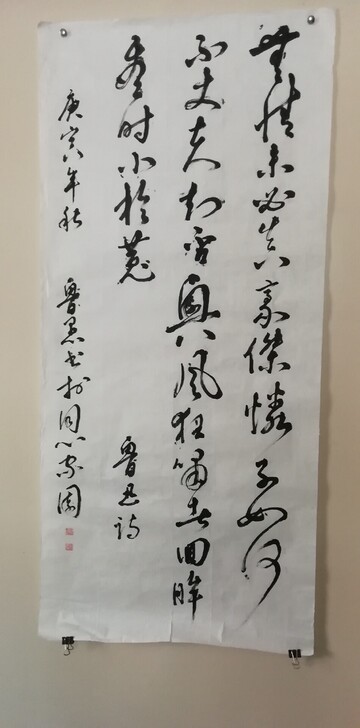 無情未必真豪傑憐子如何
不丈夫知否興風狂嘯者回眸
看时小於菟
魯迅詩
庚寅年秋
魯 书於同心家園